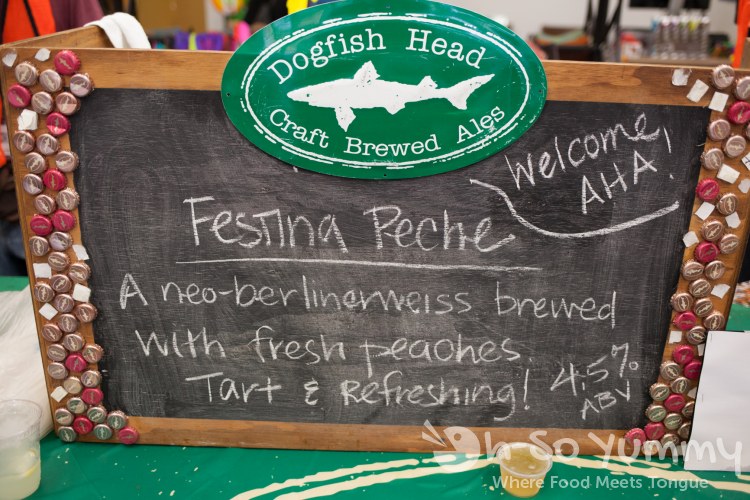 Dogfish Head
Craft Brewed Ales
Welcome
AHA!
Festina Peche
A neo-berlinerweiss brewed
with fresh peaches.
Tart & Refreshing!
4.5%
ABV
Oh So Yummy
Where Food Meets Tongue